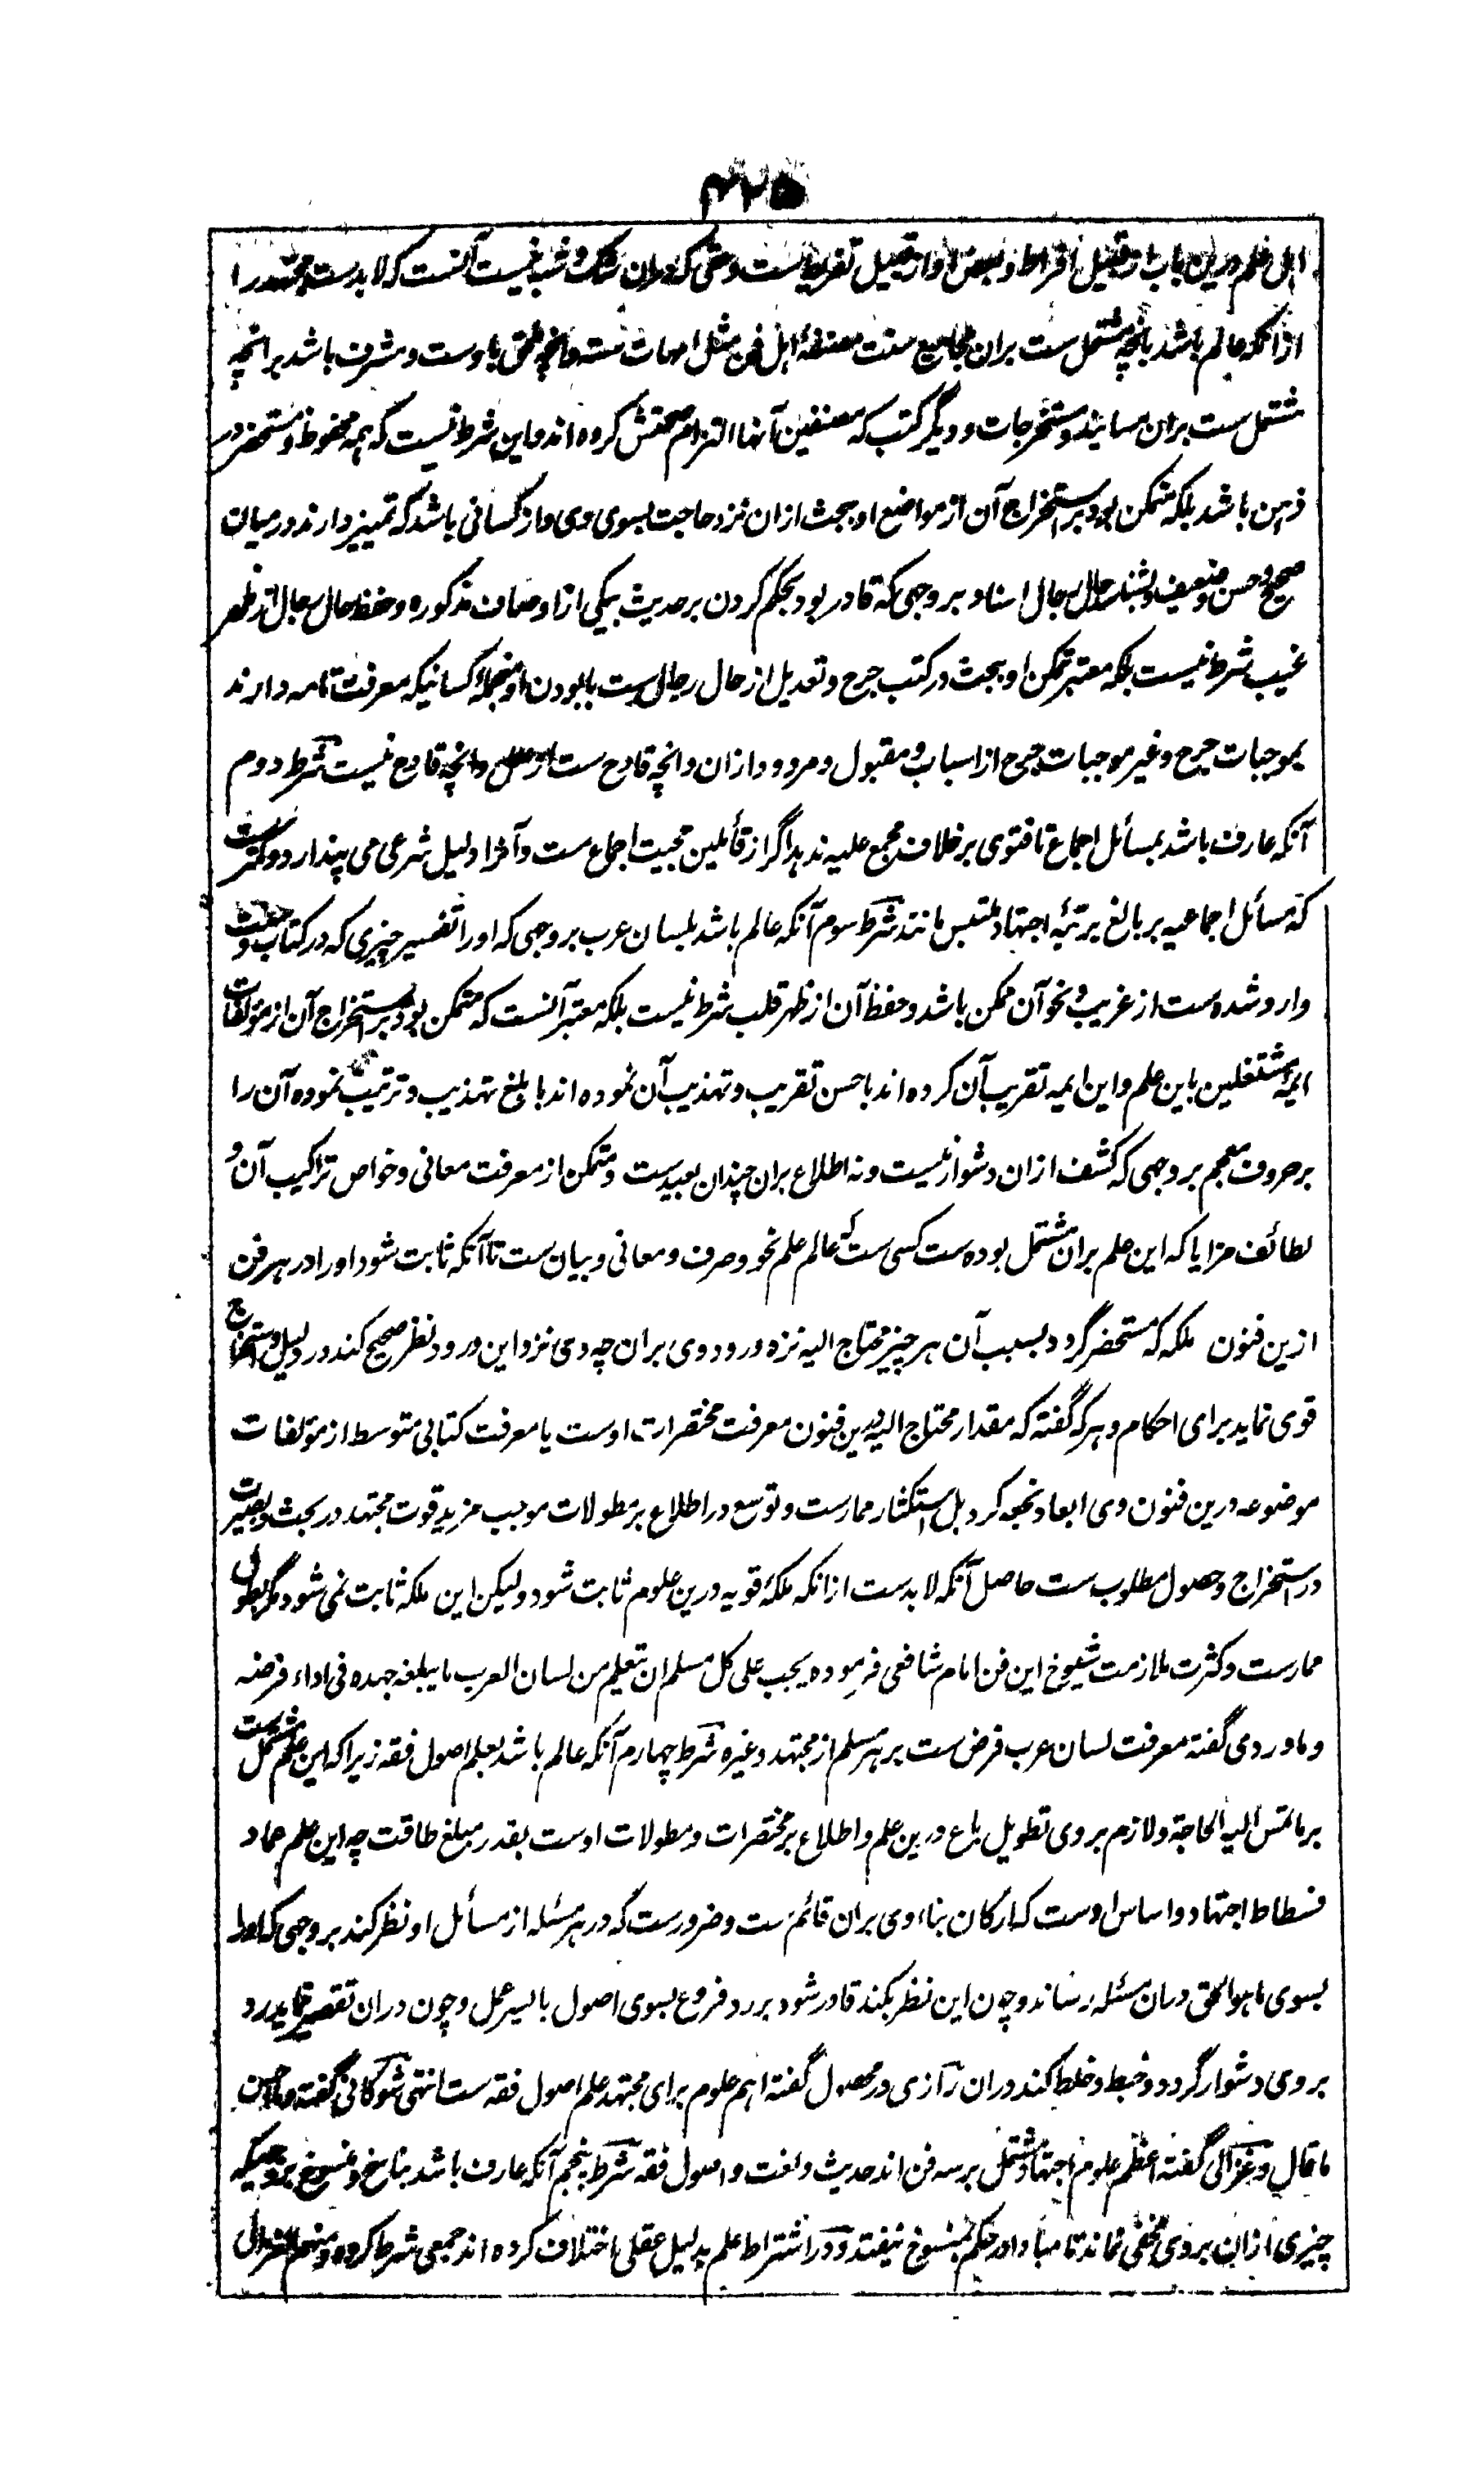 ۴۲۵
اہل علم درین باب از قبیل افراط و بعض او از قبیل تفریط ست و حقی که دران شک و شبہ نیست آنست که لابدست مجتہد را
از انکه عالم باشد بانچه مشتمل ست بران مجامیع سنت مصنفۂ اہل فن مثل امہات سته و انچه ملحق باوست و مشرف باشد بر انچه
مشتمل ست بران مسانید و مستخرجات و دیگر کتب که مصنفین آنہا التزام صحتش کرده اند و این شرط نیست که ہمہ محفوظ و مستحضر در
ذہن باشد بلکه متمکن بود بر استخراج آن از مواضع او ببحث ازان نزد حاجت بسوی وی و از کسانی باشد که تمییز دارند درمیان
صحیح و حسن و ضعیف و بشناسد حال رجال اسناد بروجہی که قادر بود بحکم کردن بر حدیث بیکی از اوصاف مذکوره و حفظ حال رجال از ظہر
غیب شرط نیست بلکه معتبر تمکن او ببحث در کتب جرح و تعدیل از حال رجال ست با بودن او منجملۂ کسانیکه معرفت تامہ دارند
بموجبات جرح و غیر موجبات جرح از اسباب و مقبول و مردود ازان و انچه قادح ست از علل و انچه قادح نیست شرط دوم
آنکه عارف باشد بمسائل اجماع تا فتوی بر خلاف مجمع علیہ ندہد اگر از قائلین بحجیت اجماع ست و آنرا دلیل شرعی می پندارد و کمتر ست
که مسائل اجماعیہ بر بالغ برتبۂ اجتہاد ملتبس مانند شرط سوم آنکه عالم باشد بلسان عرب بروجہی که او را تفسیر چیزی که در کتاب و سنت
وارد شده ست از غریب و نحو آن ممکن باشد و حفظ آن از ظہر قلب شرط نیست بلکه معتبر آنست که متمکن بود بر استخراج آن از مؤلفات
ایمۂ مشتغلین باین علم و این ایمہ تقریب آن کرده اند باحسن تقریب و تہذیب آن نموده اند بابلغ تہذیب و ترتیب نموده آن را
بر حروف معجم بروجہی که کشف ازان دشوار نیست و نہ اطلاع بران چندان بعیدست و متمکن از معرفت معانی و خواص تراکیب آن و
لطائف مزایا که این علم بران مشتمل بوده ست کسی ست که عالم علم نحو و صرف و معانی و بیان ست تا آنکه ثابت شود او را در ہر فن
ازین فنون ملکه که مستحضر گردد بسبب آن ہر چیز محتاج الیہ نزد ورود وی بران چہ وی نزد این ورود نظر صحیح کند در دلیل و استخراج
قوی نماید برای احکام و ہرکه گفته که مقدار محتاج الیہ درین فنون معرفت مختصرات اوست یا معرفت کتابی متوسط از مؤلفات
موضوعہ درین فنون وی ابعاد نجعہ کرد بل استکثار ممارست و توسع در اطلاع بر مطولات موجب مزید قوت مجتہد در بحث و بصیرت
در استخراج و حصول مطلوب ست حاصل آنکه لابدست از انکه ملکۂ قویہ درین علوم ثابت شود ولیکن این ملکه ثابت نمی شود مگر بطول
ممارست و کثرت ملازمت شیوخ این فن امام شافعی فرموده یجب علی کل مسلم ان یتعلم من لسان العرب ما یبلغہ جہده فی اداء فرضہ
و ماوردی گفته معرفت لسان عرب فرض ست بر ہر مسلم از مجتہد و غیره شرط چہارم آنکه عالم باشد بعلم اصول فقہ زیرا که این علم مشتمل ست
بر ما تمس الیہ الحاجة و لازم بر وی تطویل باع درین علم و اطلاع بر مختصرات و مطولات اوست بقدر مبلغ طاقت چہ این علم عماد
فسطاط اجتہاد و اساس اوست که ارکان بناء وی بران قائم ست و ضرورست که در ہر مسئلہ از مسائل او نظر کند بروجہی که او را
بسوی ما ہو الحق دران مسئلہ رساند و چون این نظر بکند قادر شود بر رد فروع بسوی اصول بایسر عمل و چون دران تقصیر نماید رد
بر وی دشوار گردد و خبط و خلط کند دران رازی در محصول گفته اہم علوم برای مجتہد علم اصول فقہ ست انتہی شوکانی گفته و ما احسن
ما قال و غزالی گفته اعظم علوم اجتہاد مشتمل بر سه فن اند حدیث و لغت و اصول فقہ شرط پنجم آنکه عارف باشد بناسخ و منسوخ بروجہیکه
چیزی ازان بر وی مخفی نماند تا مبادا در حکم بمنسوخ نیفتد و در اشتراط علم بدلیل عقلی اختلاف کرده اند جمعی شرط کرده و منہم الغزالی